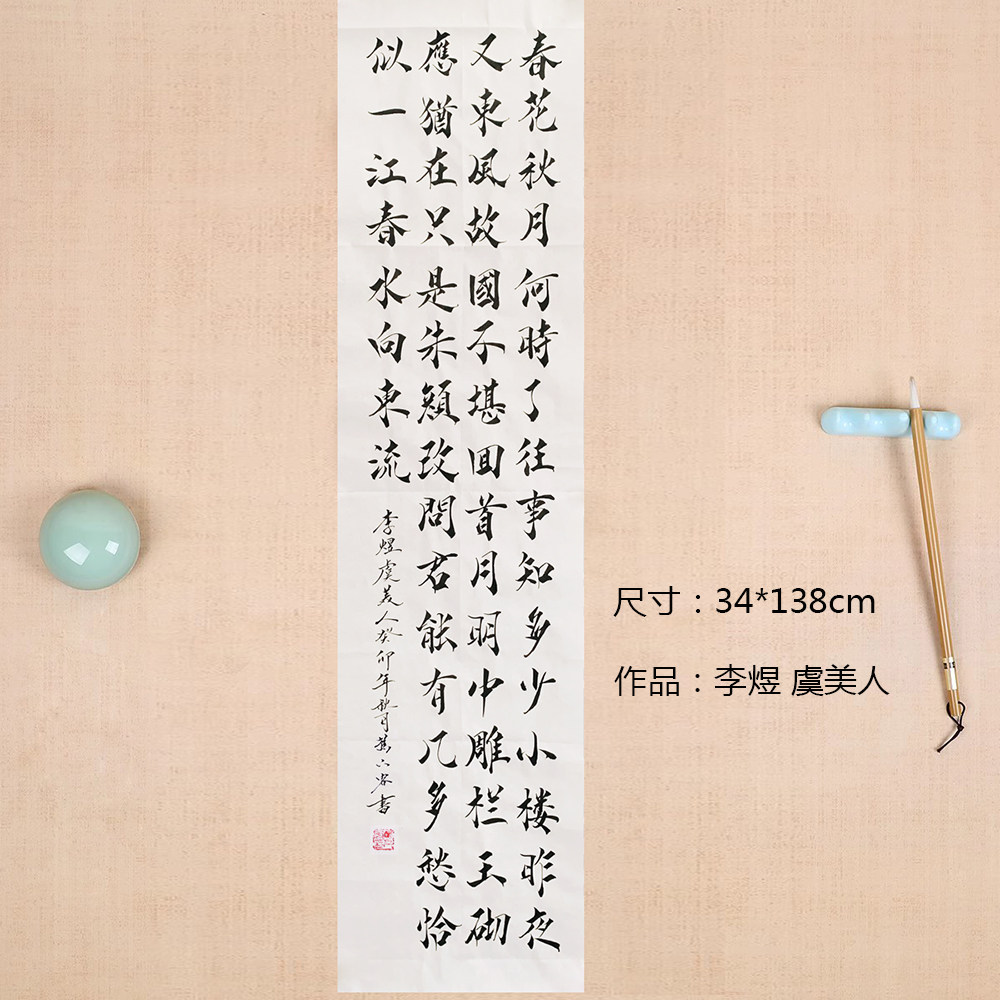 春花秋月何時了往事知多少小楼昨夜
又東風故國不堪囬首月明中雕栏玉砌
應猶在只是朱顏改問君能有几多愁恰
似一江春水向東流
李煜虞美人癸卯年秋月書
尺寸：34*138cm
作品：李煜 虞美人